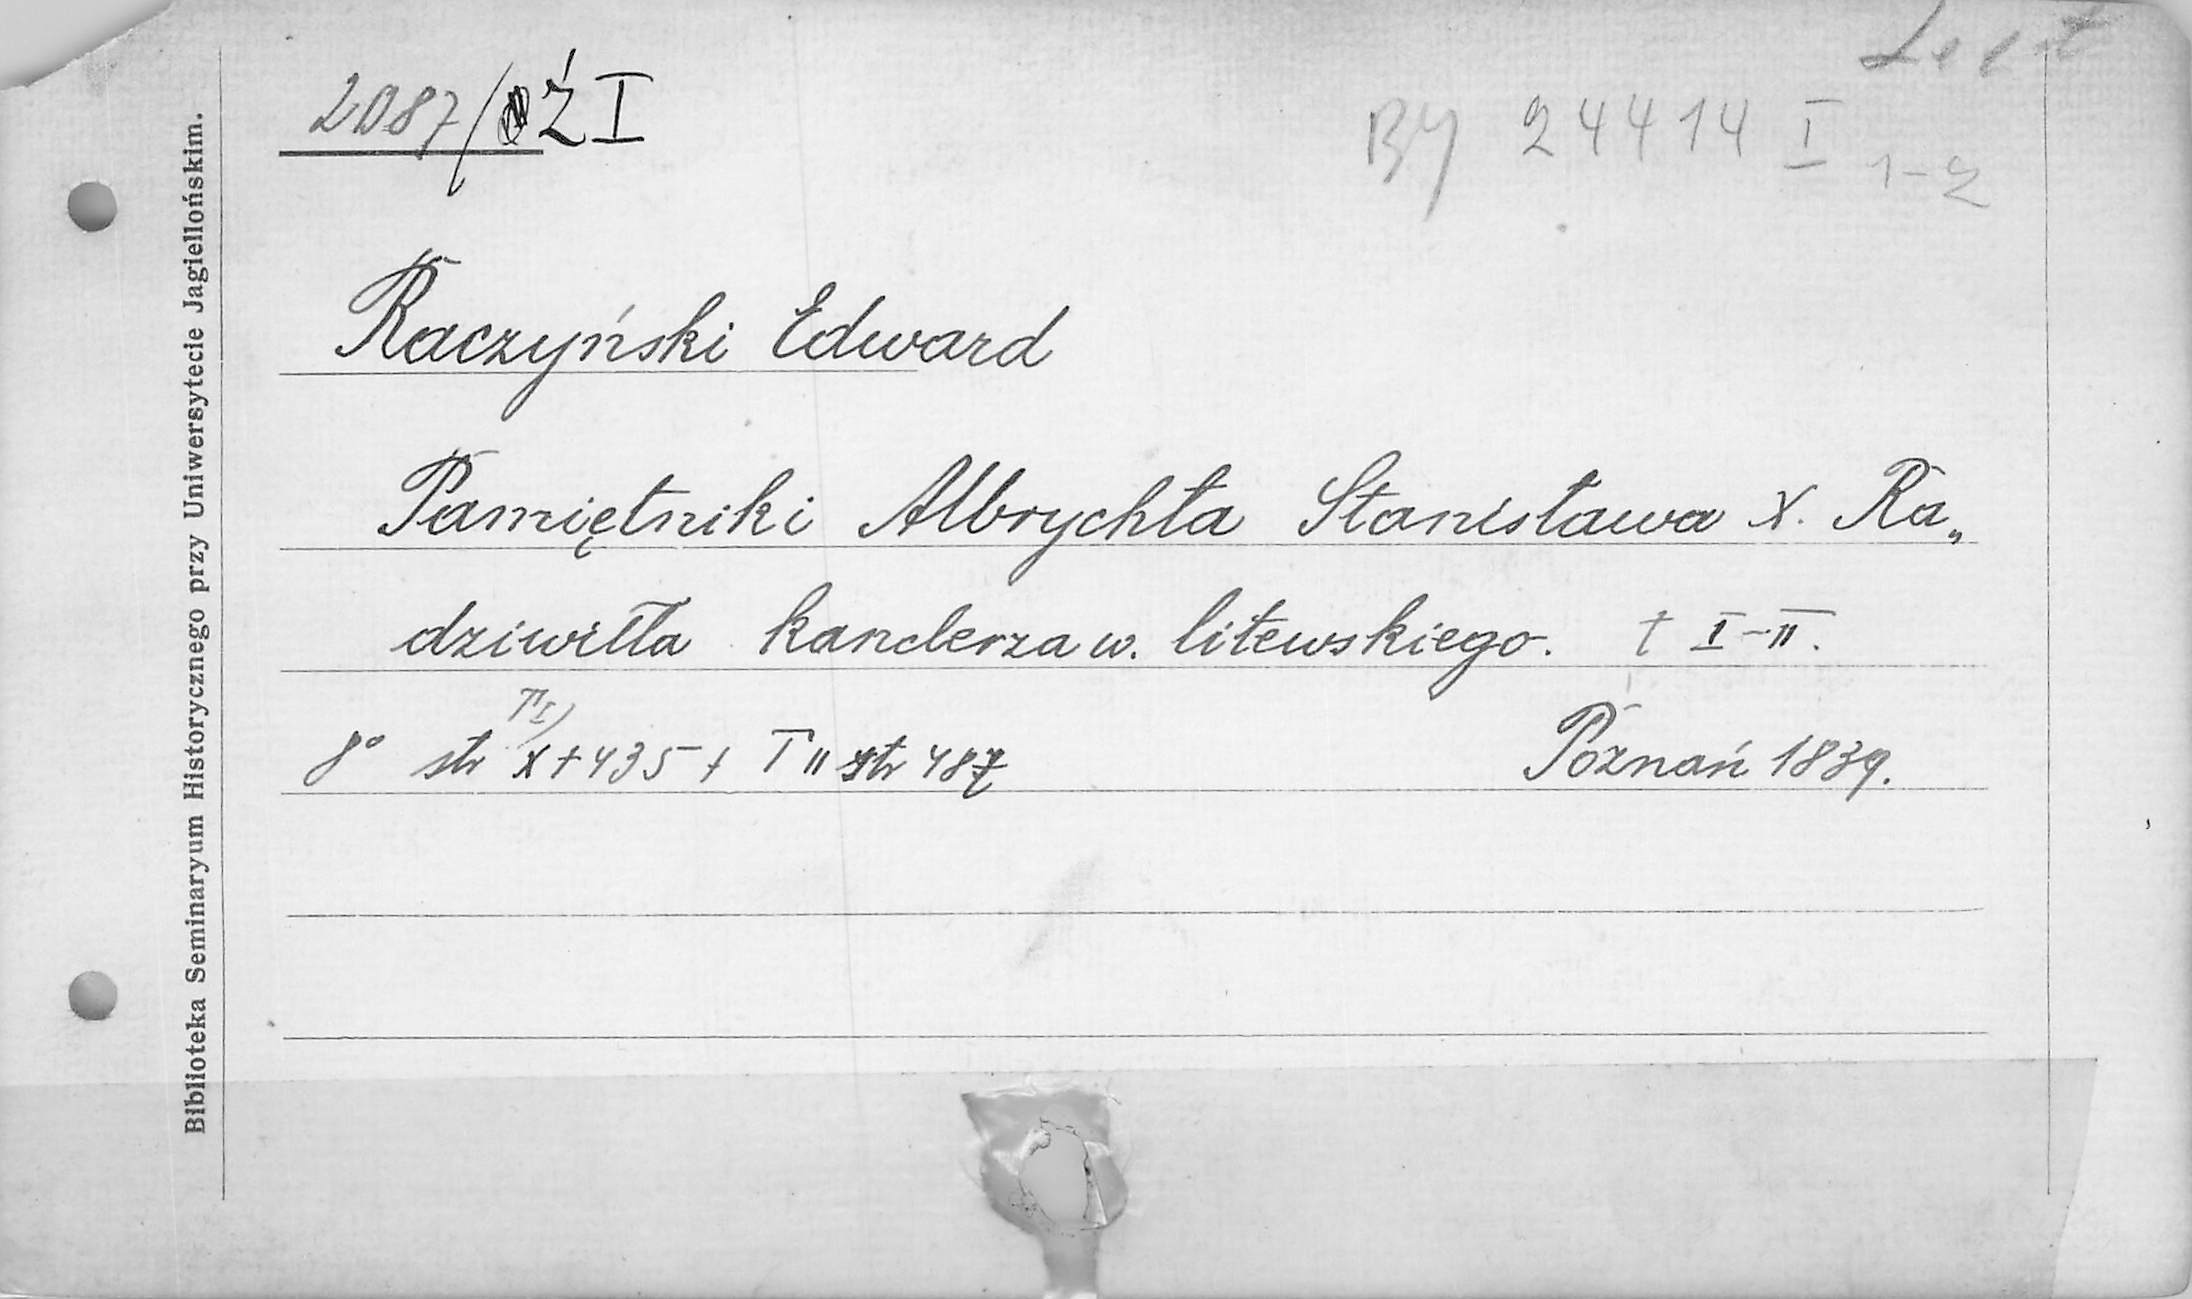 2087/Ź I
BY 24414 I 1-2
Raczyński Edward
Pamiętniki Albrychta Stanisława X. Ra„
dziwiłła kanclerza w. litewskiego. t I-II.
8° str T I) X+435+ T II str 487 Poznań 1839.
Biblioteka Seminaryum Historycznego przy Uniwersytecie Jagiellońskim.